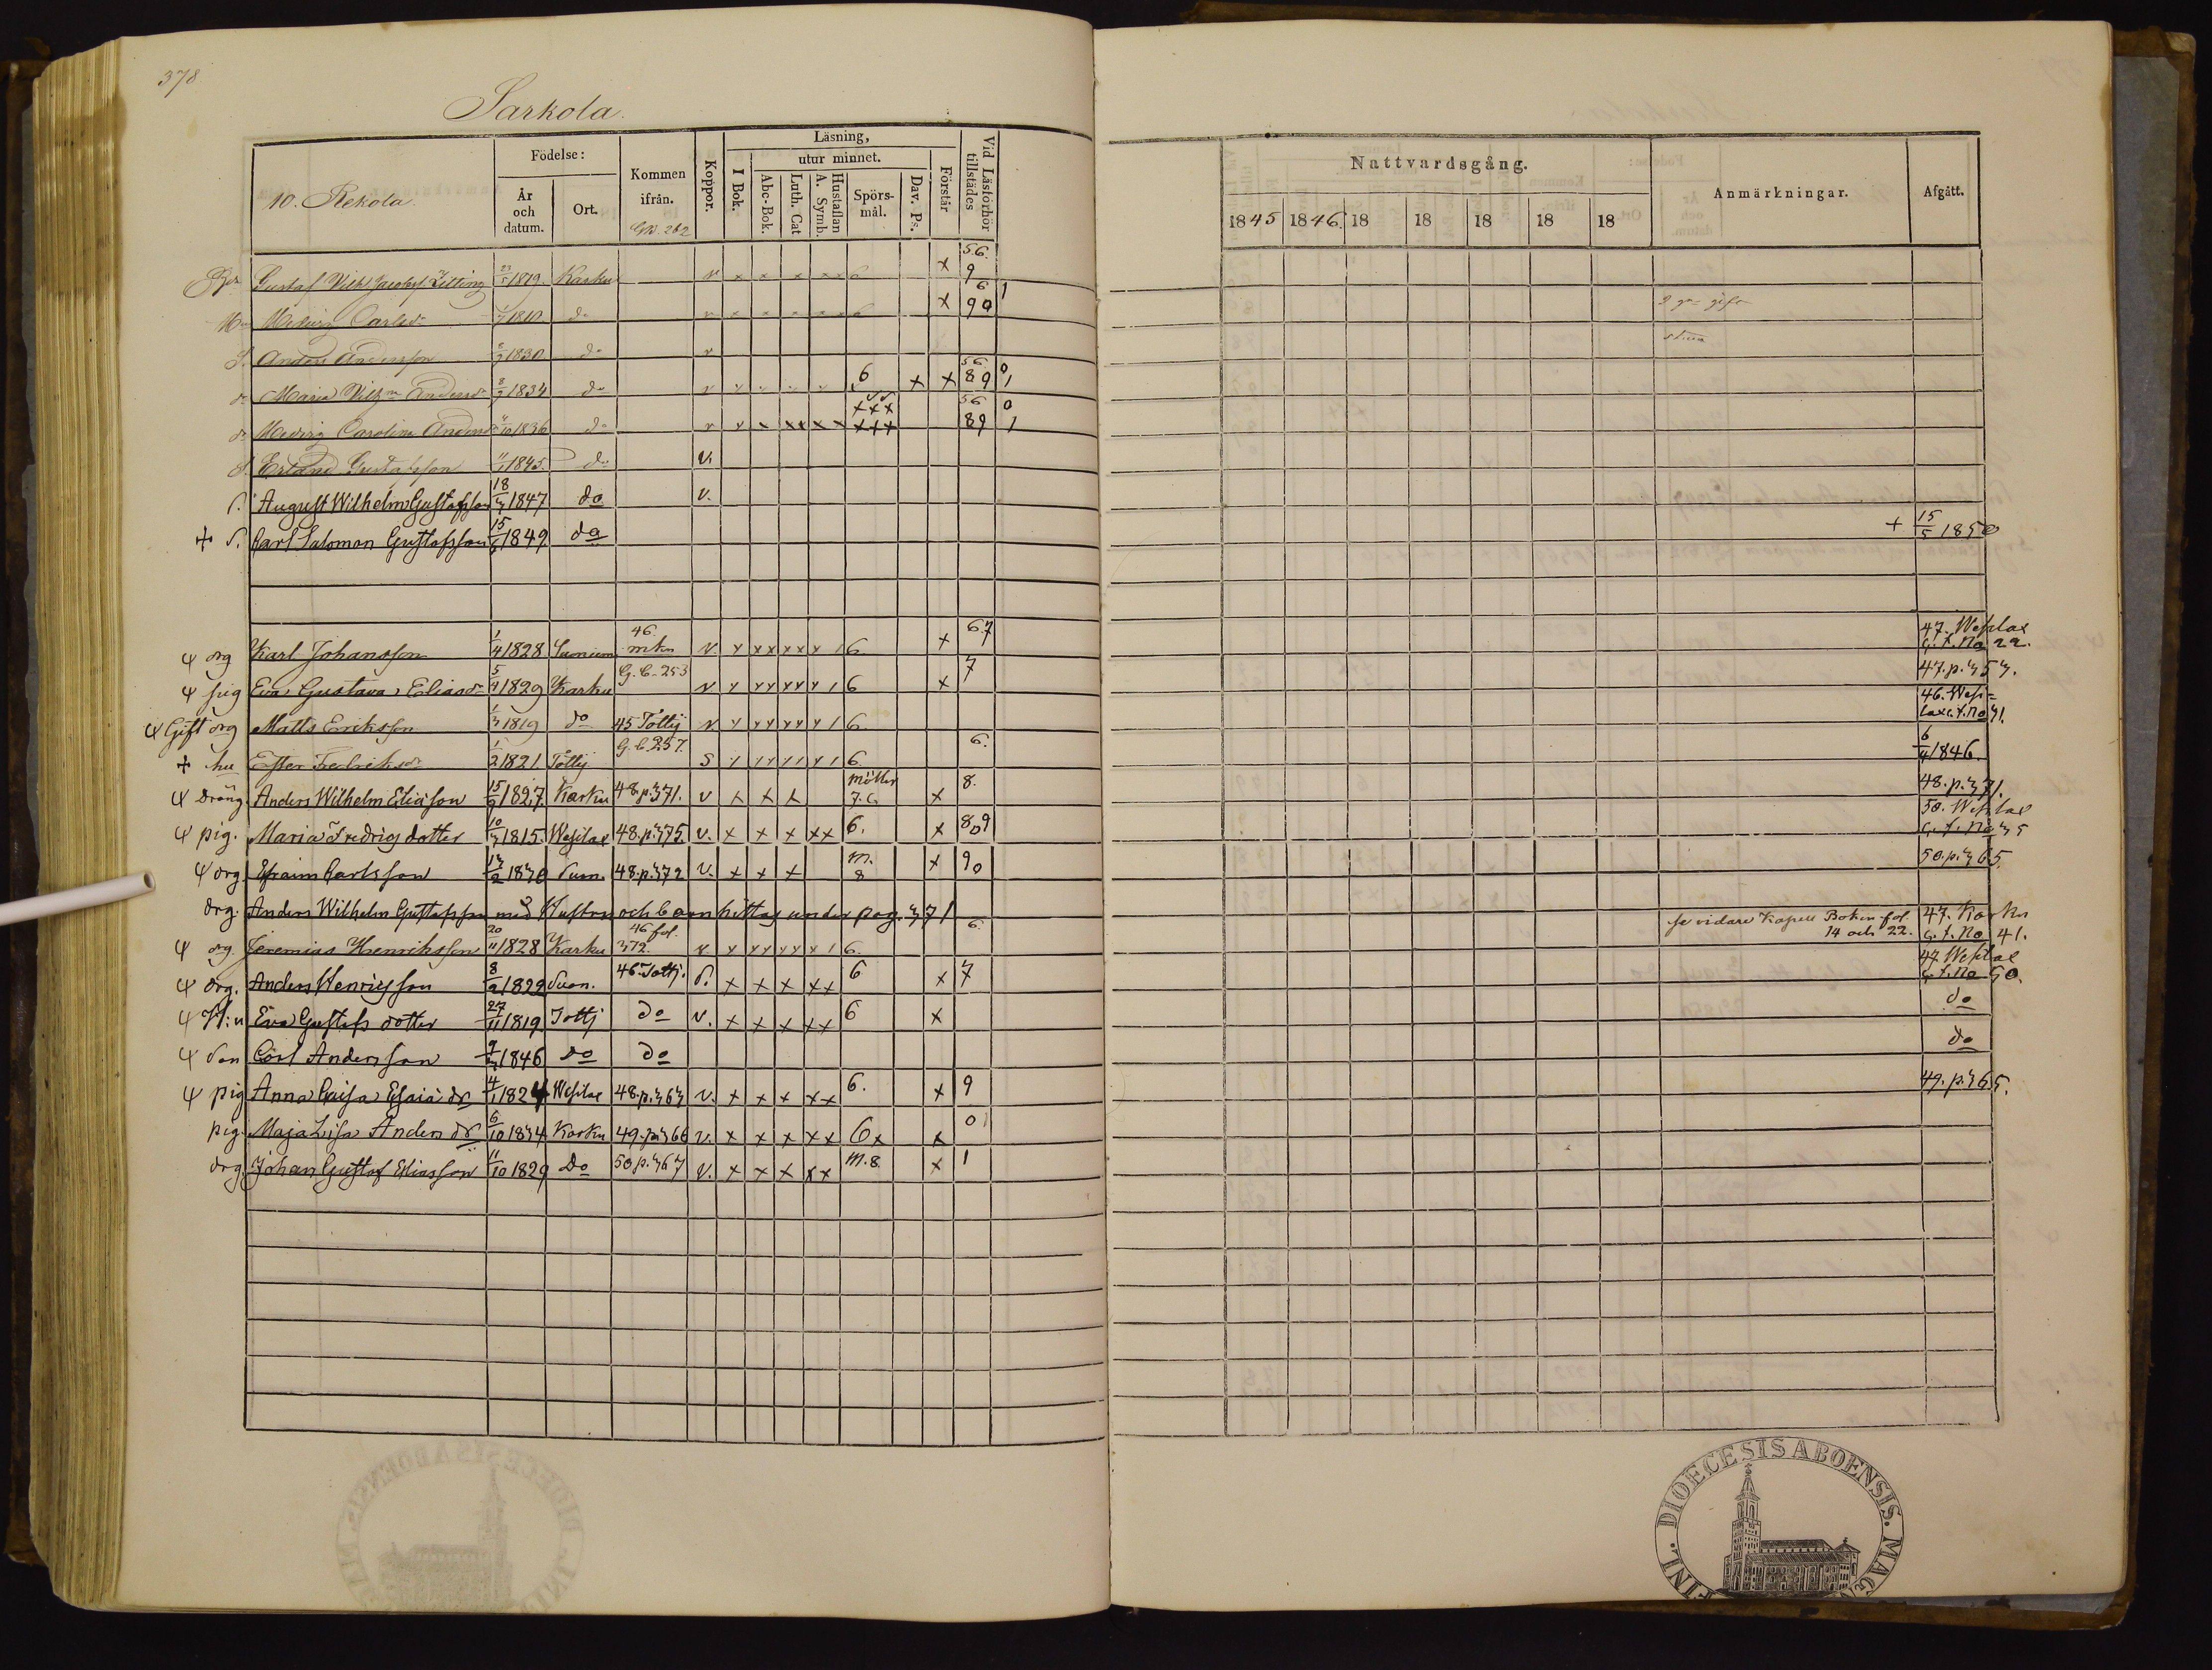 378
Sarkola.
10. Rekola
Födelse:
År och datum.
Ort.
Kommen ifrån.
Koppor.
Läsning,
I Bok.
utur minnet.
Abc-Bok.
Luth. Cat
Hustaflan A. Symb.
Spörs-mål.
Dav. Ps.
Förstår
Vid Läsförhör tillstädes
Nattvardsgång.
1845 1846. 18 18 18 18 18
Anmärkningar.
Afgått.
Gustaf Wilh. 1819. Karku v x x x x x 6 x 56. 9
Hedvig Carlsdr 1810 do v x x x x x 6 x 6 90 1
Anders Andersson 1830 do v
do Maria Andersdr 8/9 1834 do v 6 x x 56 89 0 1
do Hedvig Carolina 1836 do v x x xx x x xxx 56 89 0 1
S. Erland Gustafsson 1845. do v.
S. August Wilhelm Gustafsson 18/3 1847 do v.
+ S. Carl Salomon Gustafsson 15/6 1849 do + 15/5 1850
drg Karl Johansson 1/4 1828 46. v. 6 x 6.7 47. Wesilax No 22.
pig Eva Gustava Eliasdr 5/4 1829 Karku G.B. 253 v 6 x 7 47.p.357.
Gift drg Matts Eriksson 1/3 1819 do 45 Tottij v 6. 46. Wesilax No 31.
+ hu Ester Fredriksdr 1/2 1821 Tottij G.B. 257. S 6. 6. 6/4 1846.
dräng. Anders Wilhelm Eliasson 15/9 1827. Karku 48.p.371. v x x x 7.6. x 8. 48.p.371.
pig. Maria Fredrigsdotter 10/3 1815. Wesilax 48.p.375. v. x x x xx 6. x 809 50. Wesilax No 35
drg. Efraim Carlsson 13/2 1830 Suon. 48.p.372 v. x x x m. 8 x 90 50.p.365.
drg. Anders Wilhelm Gustafsson med Hustru och barn hittas under pag. 371
drg. Jeremias Henriksson 20/11 1828 Karku 46 fol. 372. v. 6. 6. se vidare Kapell Boken fol. 14 och 22. 47. Karku No 41.
drg. Anders Henriksson 8/2 1822 Suon. 46. Tottj. S. x x x xx 6 x 7 47 Wesilax No 50.
H:u Eva Gustafsdotter 27/11 1819 Tottj do v. x x x xx 6 x do
Son Carl Andersson 9/3 1846 do do do
pig Anna Caisa Esaiädr 4/1 1824 Wesilax 48.p.363 v. x x x xx 6. x 9 49.p.365.
pig. Maja Lisa Andersdr 6/10 1834 Karku 49.p.366 v. x x x xx 6x x 0
drg. Johan Gustaf Eliasson 11/10 1829 Do 50 p.367 v. x x x xx m.8. x 1
FINL. DIOECESIS ABOENSIS. MAGN